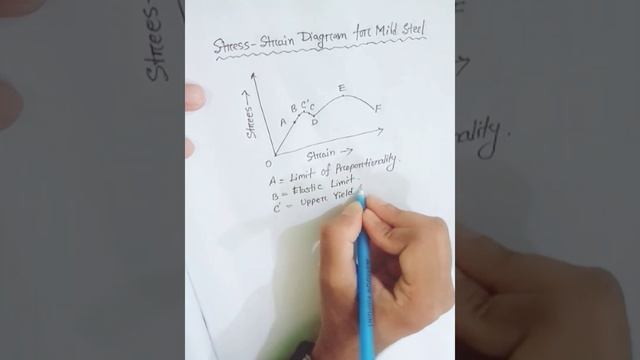 Stress-Strain Diagram for Mild Steel
E
B C' C
A
D
F
Stress →
O
Strain →
A = Limit of Proportionality.
B = Elastic Limit.
C' = Upper Yield